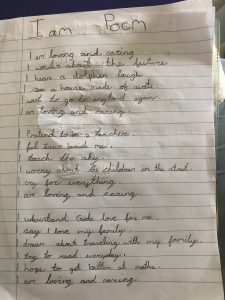 I am Poem
I am loving and caring.
I wonder about the future
I hear a dolphin laugh
I see a house made of
want to go to england again.
am loving and caring.
Pretend to be a teacher.
fel Jesus beside me.
touch the sky.
worry about the children in the streat.
cry for everything.
am loving and caring
understand Gods love for me.
say I love my family.
dream about traveling with my family.
try to read everyday.
hope to get better at maths.
am loving and caring